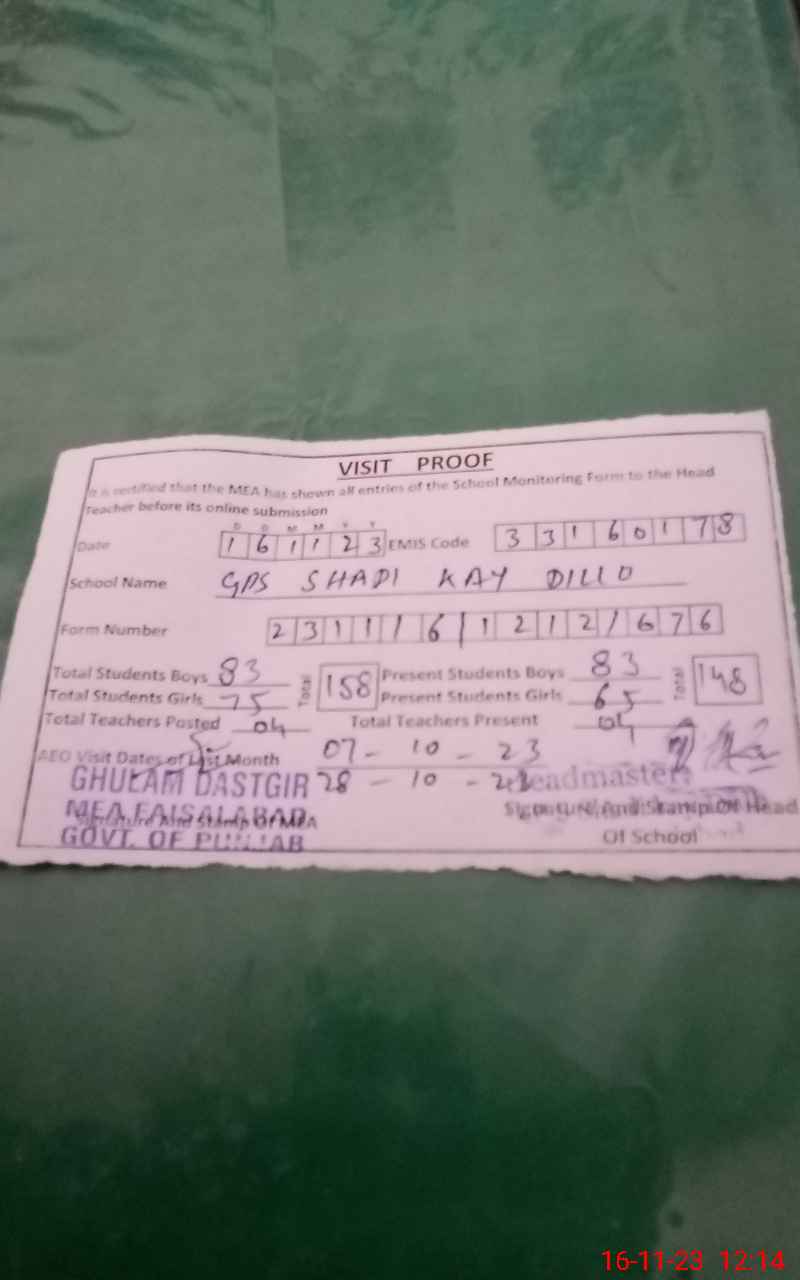 VISIT PROOF
It is certified that the MEA has shown all entries of the School Monitoring Form to the Head
Teacher before its online submission
D D M M Y Y
Date 1 6 1 1 2 3 EMIS Code 3 3 1 6 0 1 7 8
School Name GPS SHADI KAY DILLO
Form Number 2 3 1 1 1 6 1 1 2 1 2 1 6 7 6
Total Students Boys 83 Total 158 Present Students Boys 83 Total 148
Total Students Girls 75 Present Students Girls 65
Total Teachers Posted 04 Total Teachers Present 04
AEO Visit Dates of Last Month 07 - 10 - 23
GHULAM DASTGIR 28 - 10 - 23 Headmaster
MEA FAISALABAD
Signature And Stamp Of MEA Signature And Stamp Of Head
GOVT. OF PUNJAB Of School
16-11-23 12:14